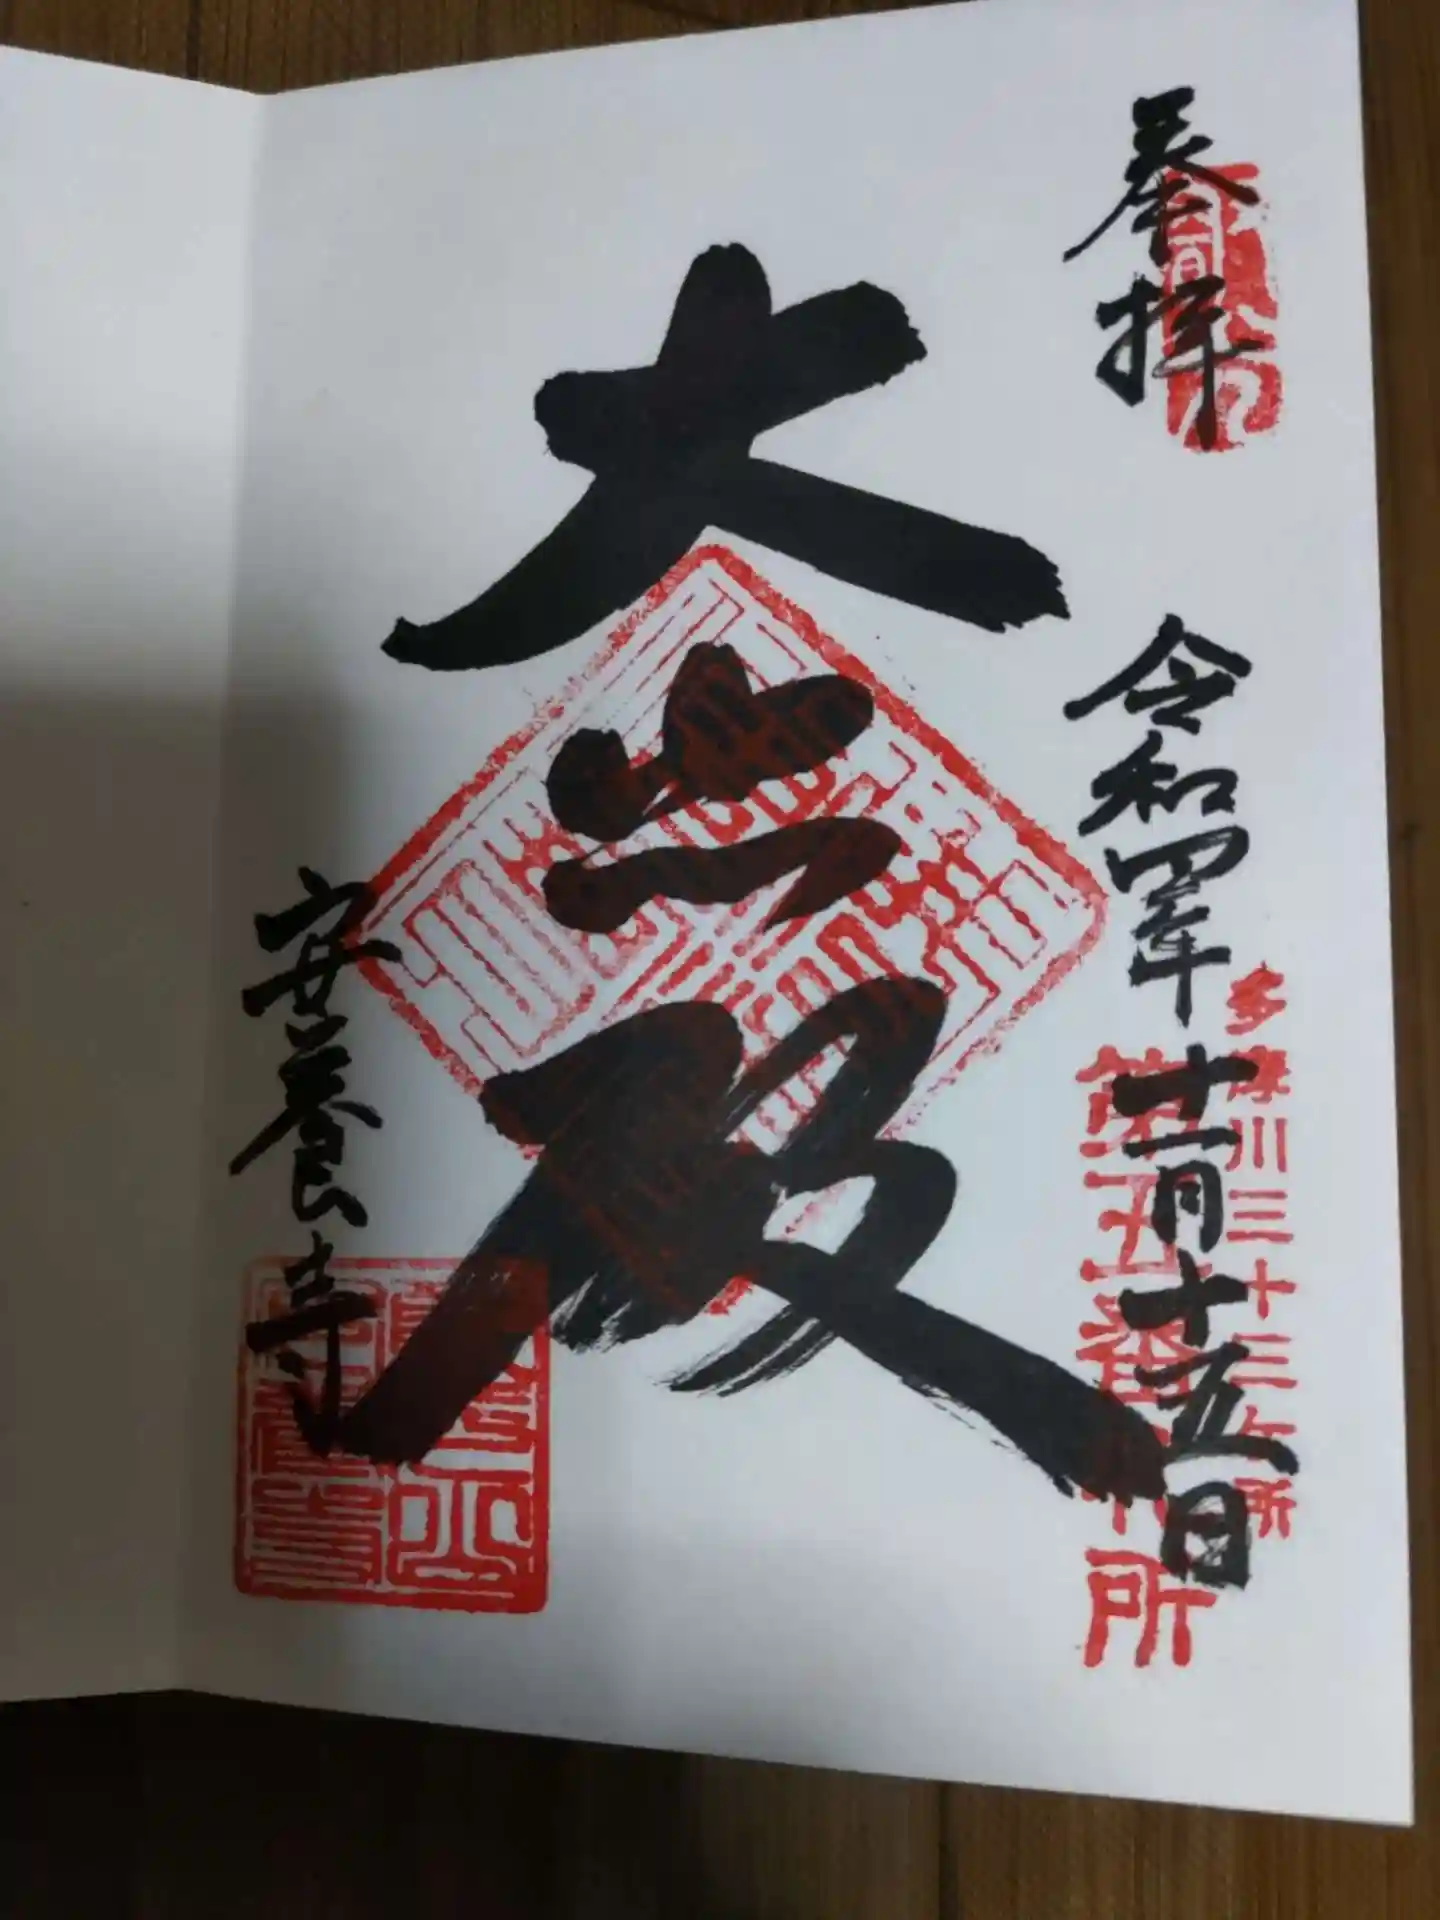 奉拝
令和四年十一月十五日
多摩川三十三ヶ所
第五番札所
大悲殿
安養寺